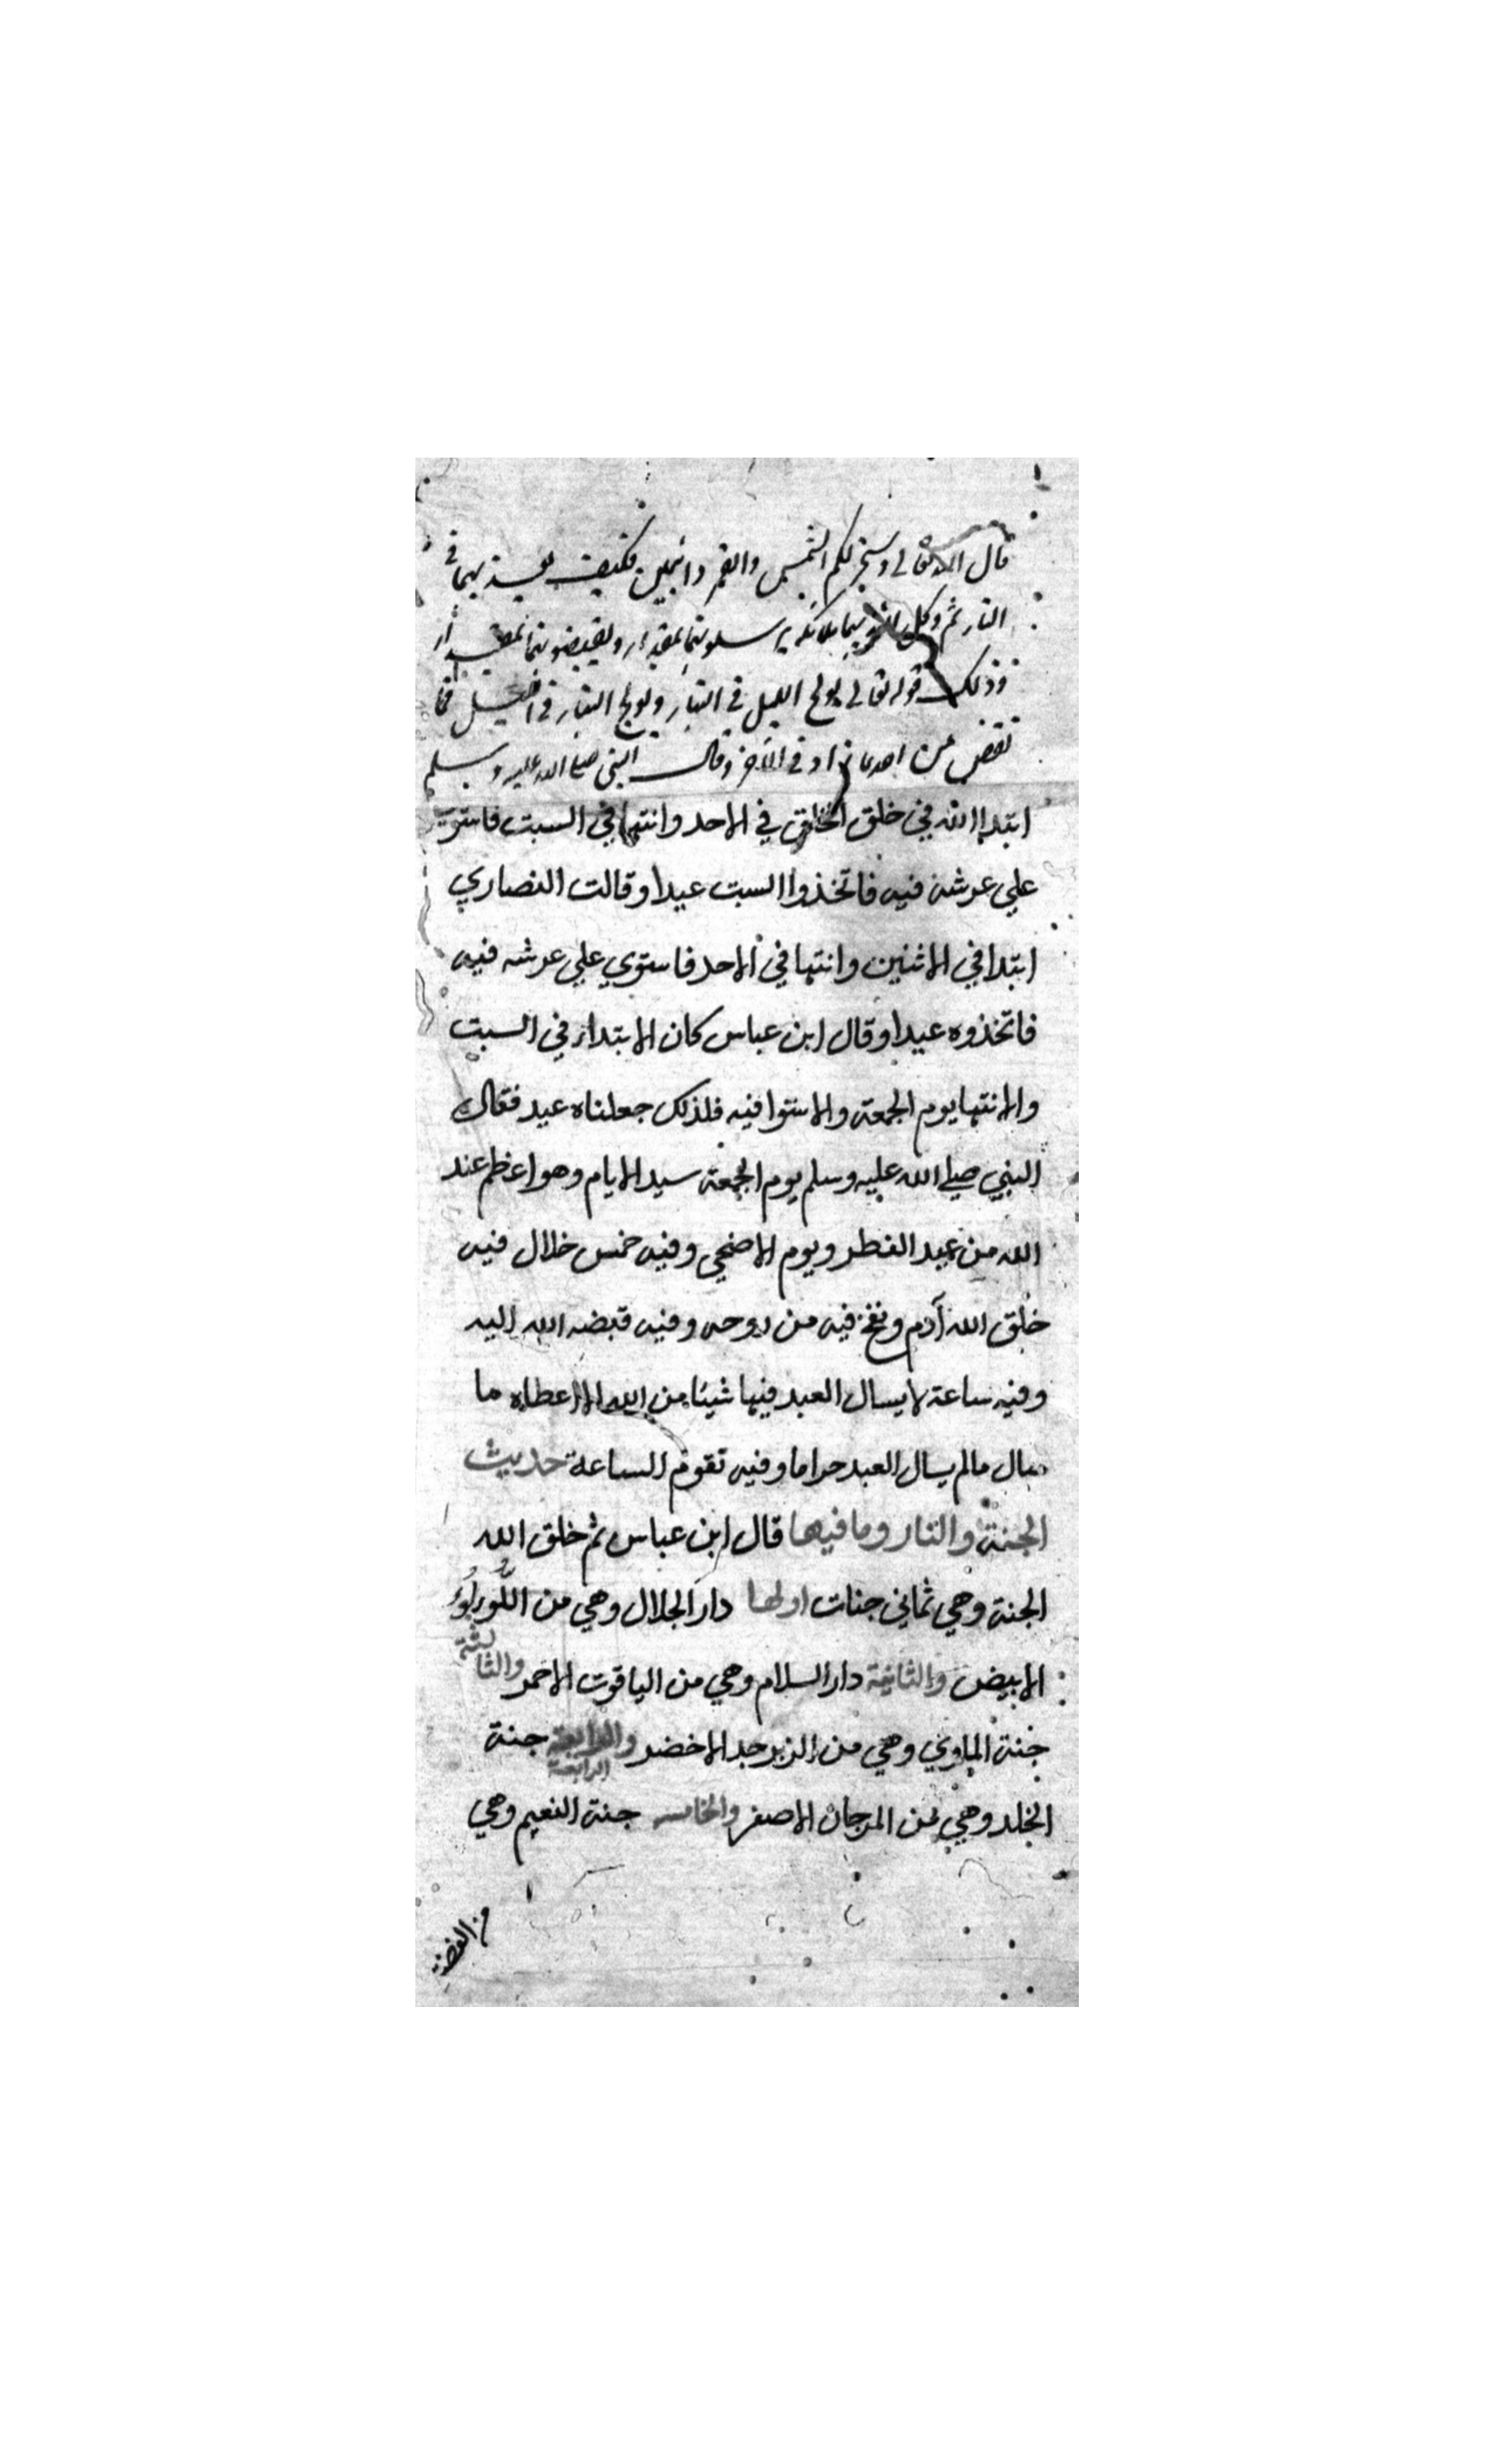 قال الله تعالى وسخر لكم الشمس والقمر دائبين فكيف يعذبهما في
النار ثم وكل الله بهما ملائكة يرسلونهما بمقدار ويقبضونهما بمقدار
وذلك قوله تعالى يولج الليل في النهار ويولج النهار في الليل فما
نقص من احدهما زاد في الآخر وقالت النبي صلى الله عليه وسلم
ابتدا الله في خلق الخلق في الاحد وانتها في السبت فاستوى
علي عرشه فيه فاتخذوا السبت عيدا وقالت النصاري
ابتدا في الاثنين وانتها في الاحد فاستوي علي عرشه فيه
فاتخذوه عيدا وقال ابن عباس كان الابتداء في السبت
والانتها يوم الجمعة والاستوا فيه فلذلك جعلناه عيد فقال
النبي صلي الله عليه وسلم يوم الجمعة سيد الايام وهو اعظم عند
الله من عيد الفطر ويوم الاضحي وفيه خمس خلال فيه
خلق الله آدم ونفخ فيه من روحه وفيه قبضه الله اليه
وفيه ساعة لا يسال العبد فيها شيئا من الله الا اعطاه ما
سال مالم يسال العبد حراما وفيه تقوم الساعة حديث
الجنة والنار وما فيها قال ابن عباس ثم خلق الله
الجنة وهي ثماني جنات اولها دار الجلال وهي من اللؤلؤ
الابيض والثانية دار السلام وهي من الياقوت الاحمر والثالثة
جنة الماوي وهي من الزبرجد الاخضر والرابعة جنة
الرابعة
الخلد وهي من المرجان الاصفر والخامسه جنة النعيم وهي
من الفضة